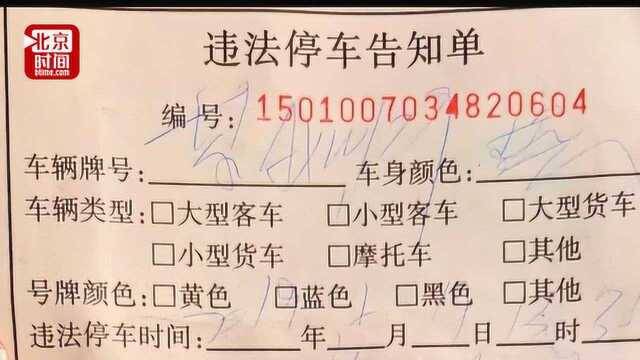 北京
时间
btime.com
违法停车告知单
编号: 1501007034820604
车辆牌号: 车身颜色:
车辆类型: □大型客车 □小型客车 □大型货车
□小型货车 □摩托车 □其他
号牌颜色: □黄色 □蓝色 □黑色 □其他
违法停车时间: 年 月 日 时